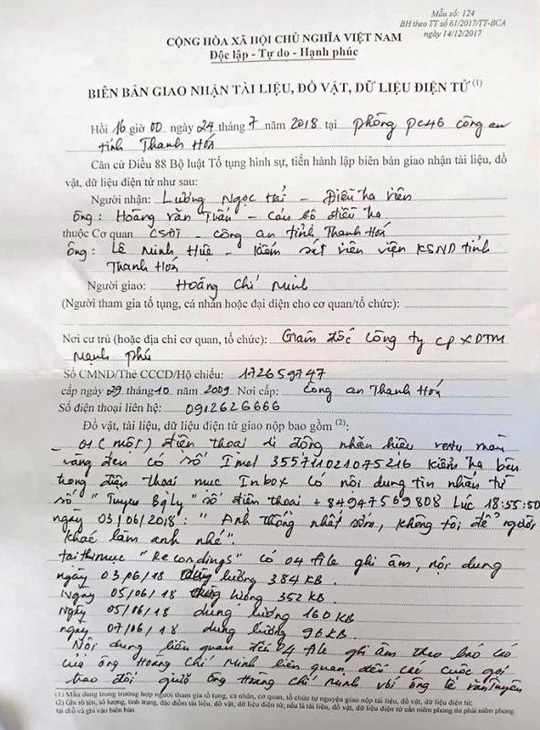 Mẫu số: 124
BH theo TT số 61/2017/TT-BCA
ngày 14/12/2017
CỘNG HÒA XÃ HỘI CHỦ NGHĨA VIỆT NAM
Độc lập - Tự do - Hạnh phúc
BIÊN BẢN GIAO NHẬN TÀI LIỆU, ĐỒ VẬT, DỮ LIỆU ĐIỆN TỬ (1)
Hồi 16 giờ 00 ngày 24 tháng 7 năm 2018 tại phòng PC46 công an
tỉnh Thanh Hoá
Căn cứ Điều 88 Bộ luật Tố tụng hình sự, tiến hành lập biên bản giao nhận tài liệu, đồ
vật, dữ liệu điện tử như sau:
Người nhận: Lường Ngọc - Điều tra viên
Ông: Hoàng Văn Tuấn - Cán bộ điều tra
thuộc Cơ quan CSĐT - công an tỉnh Thanh Hoá
Ông: Lê Minh Huê - Kiểm sát viên viện KSND tỉnh
Thanh Hoá
Người giao: Hoàng Chí Minh
(Người tham gia tố tụng, cá nhân hoặc đại diện cho cơ quan/tổ chức):
Nơi cư trú (hoặc địa chỉ cơ quan, tổ chức): Giám đốc công ty CPXDTM
Mạnh Phú
Số CMND/Thẻ CCCD/Hộ chiếu: 172659747
cấp ngày 29 tháng 10 năm 2009 Nơi cấp: Công an Thanh Hoá
Số điện thoại liên hệ: 0912626666
Đồ vật, tài liệu, dữ liệu điện tử giao nộp bao gồm (2):
01 (một) điện thoại di động nhãn hiệu màu
vàng đen có số Imel 355711021075216 kiểm tra bên
trong điện thoại mục Inbox có nội dung tin nhắn từ
số "Tuyen BqLy" số điện thoại +84947569808 Lúc 18:55:50
ngày 03/06/2018: "Anh thống nhất sớm, không tôi để người
khác làm anh nhé".
tại thư mục "Recordings" có 04 file ghi âm, nội dung
ngày 03/06/18 dung lượng 384 KB.
Ngày 05/06/18 dung lượng 352 KB
Ngày 05/06/18 dung lượng 160 KB
ngày 07/06/18 dung lượng 96 KB
Nội dung liên quan đến 04 file ghi âm theo báo cáo
của ông Hoàng Chí Minh liên quan đến các cuộc gọi
trao đổi giữa ông Hoàng Chí Minh với ông Lê Văn Tuyên
(1) Mẫu dùng trong trường hợp người tham gia tố tụng, cá nhân, cơ quan, tổ chức tự nguyện giao nộp tài liệu, đồ vật, dữ liệu điện tử;
(2) Ghi rõ tên, số lượng, tình trạng, đặc điểm tài liệu, đồ vật, dữ liệu điện tử; nếu là tài liệu, đồ vật, dữ liệu điện tử cần niêm phong thì phải niêm phong
tại chỗ và ghi vào biên bản